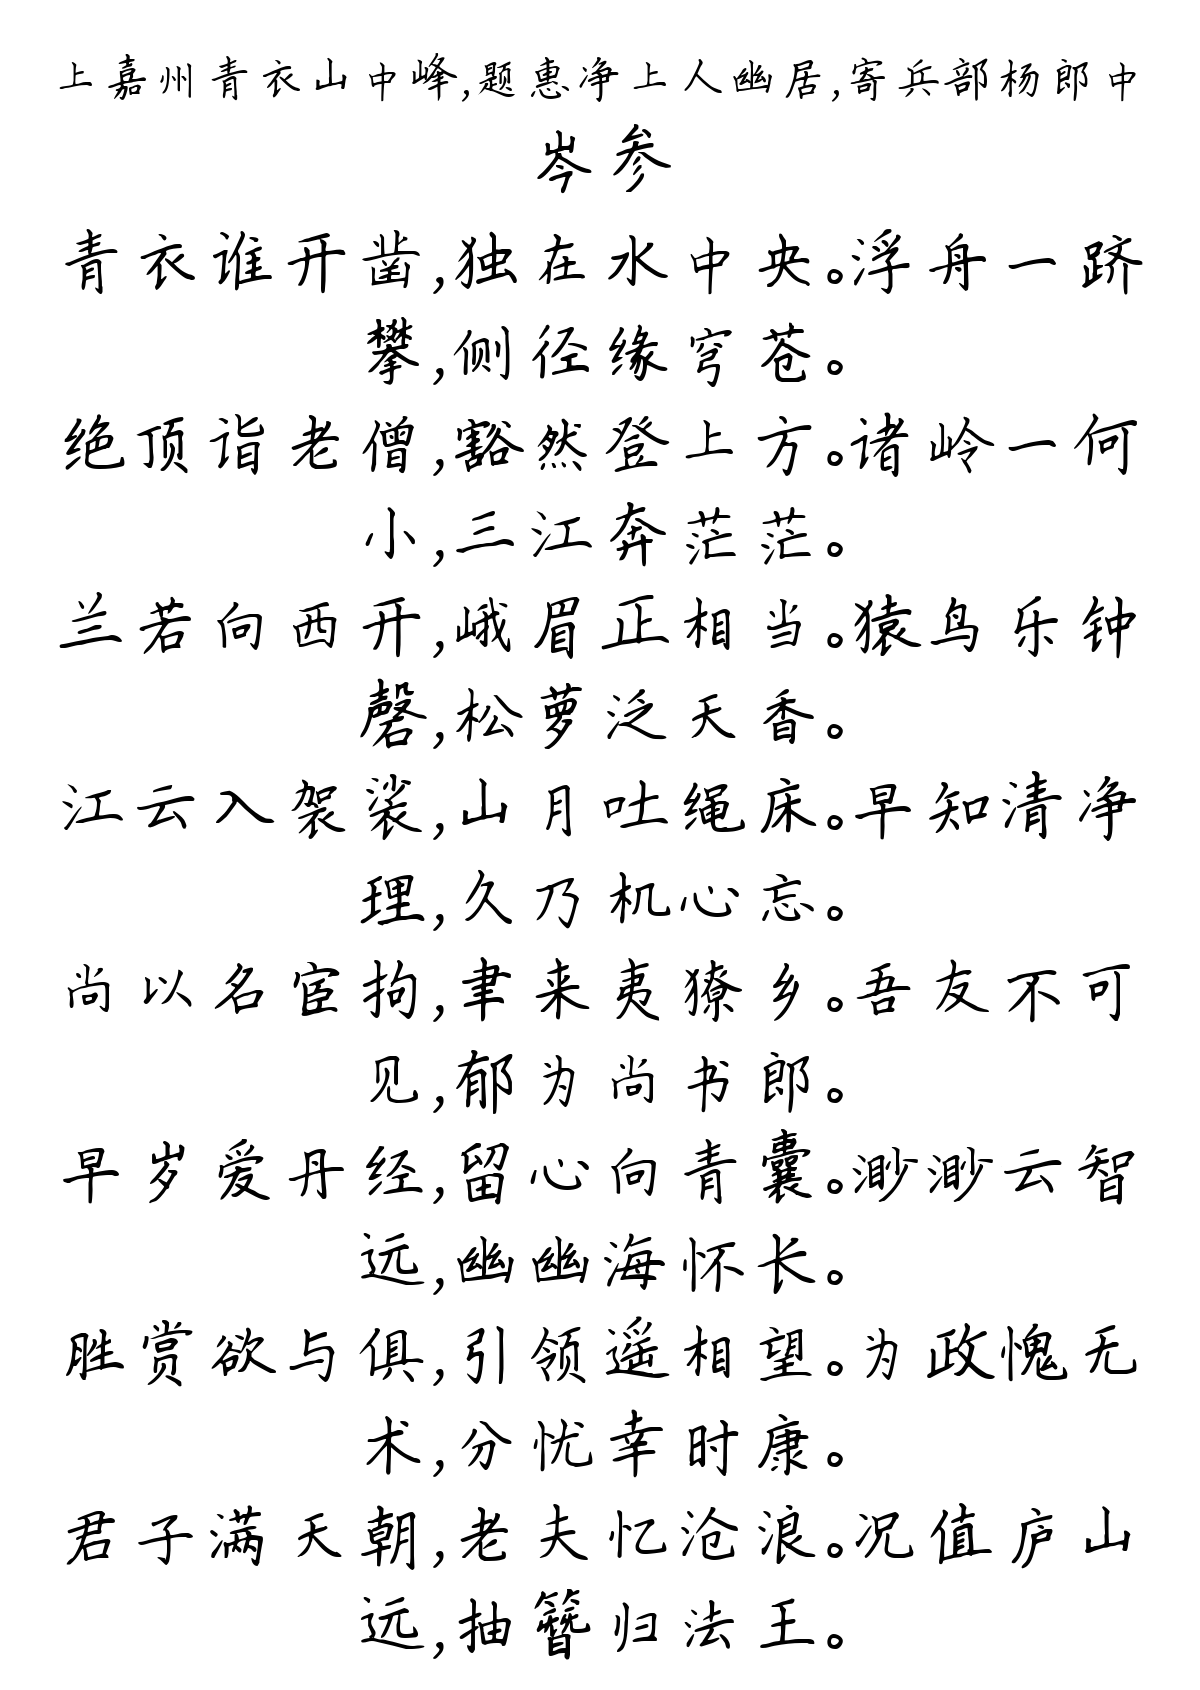 上嘉州青衣山中峰,题惠净上人幽居,寄兵部杨郎中
岑参
青衣谁开凿,独在水中央。浮舟一跻
攀,侧径缘穹苍。
绝顶诣老僧,豁然登上方。诸岭一何
小,三江奔茫茫。
兰若向西开,峨眉正相当。猿鸟乐钟
磬,松萝泛天香。
江云入袈裟,山月吐绳床。早知清净
理,久乃机心忘。
尚以名宦拘,聿来夷獠乡。吾友不可
见,郁为尚书郎。
早岁爱丹经,留心向青囊。渺渺云智
远,幽幽海怀长。
胜赏欲与俱,引领遥相望。为政愧无
术,分忧幸时康。
君子满天朝,老夫忆沧浪。况值庐山
远,抽簪归法王。